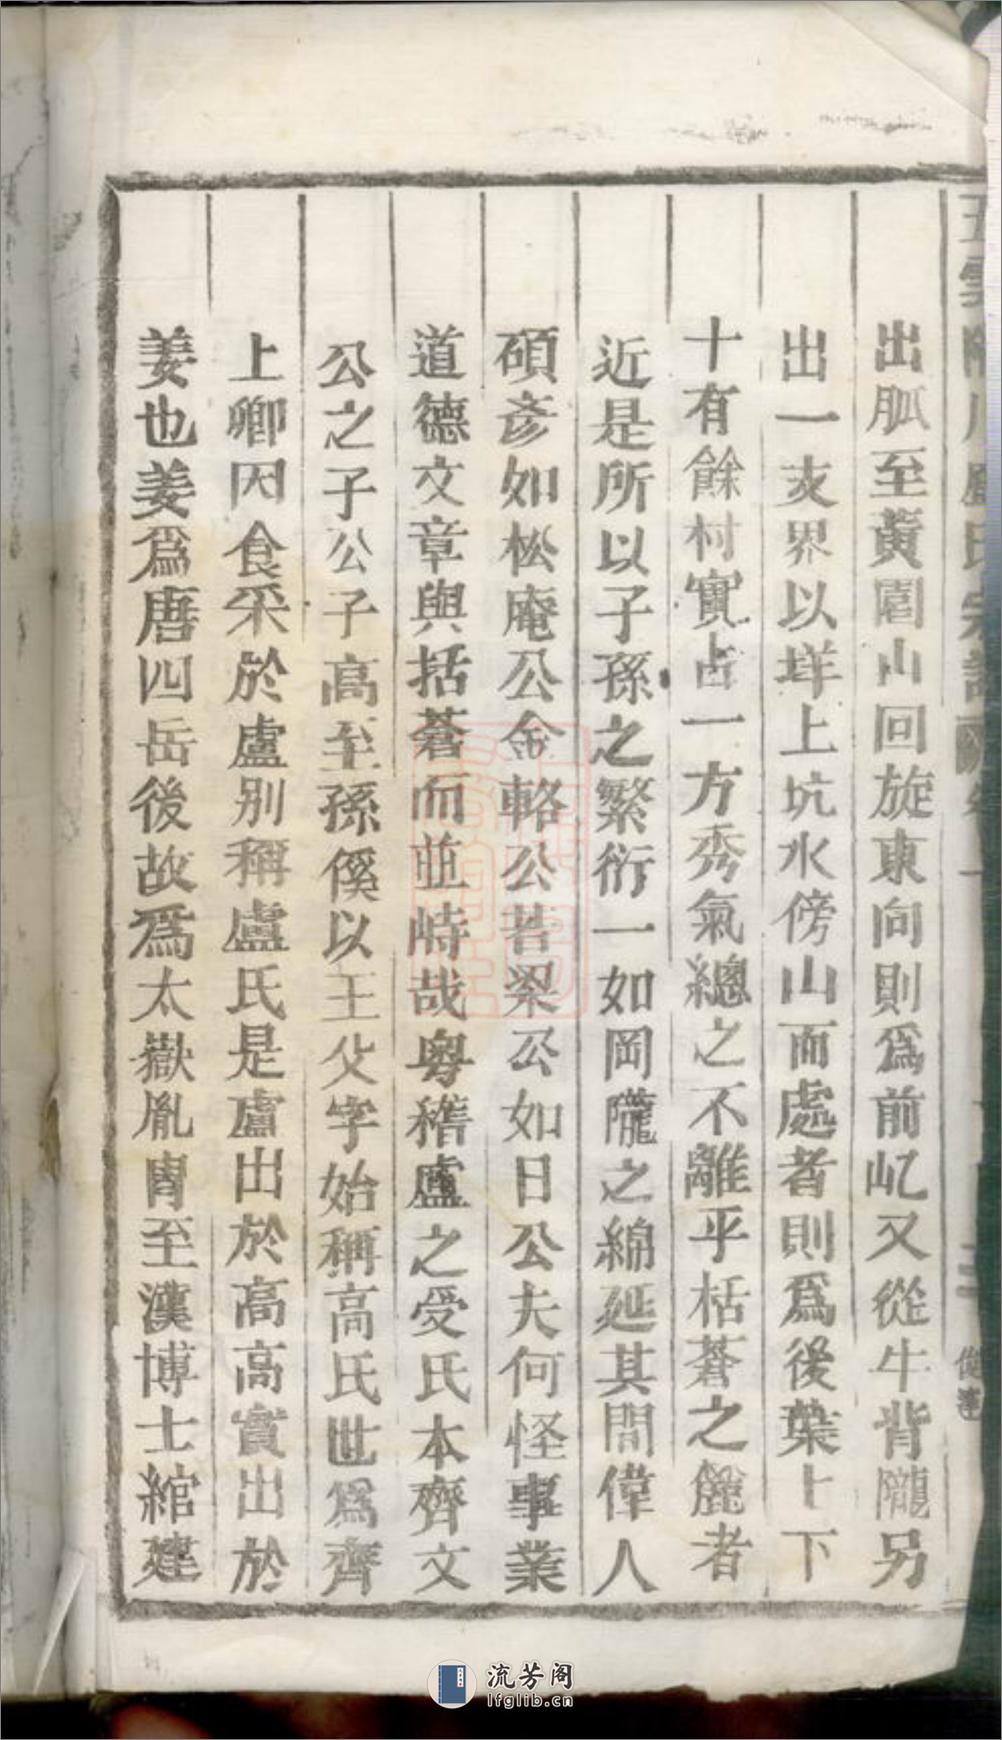 出胍至黃園山回旋東向則爲前屺又從牛背隴另
出一支界以垟上坑水傍山而處者則爲後葉上下
十有餘村實占一方秀氣總之不離乎栝蒼之麓者
近是所以子孫之繁衍一如岡隴之綿延其間偉人
碩彥如松庵公金輅公若梁公如日公夫何怪事業
道德文章與括蒼而並峙哉粤稽盧之受氏本齊文
公之子公子高至孫傒以王父字始稱高氏世爲齊
上卿因食采於盧別稱盧氏是盧出於高高實出於
姜也姜爲唐四岳後故爲太嶽胤胄至漢博士綰建
流芳阁
lfglib.cn